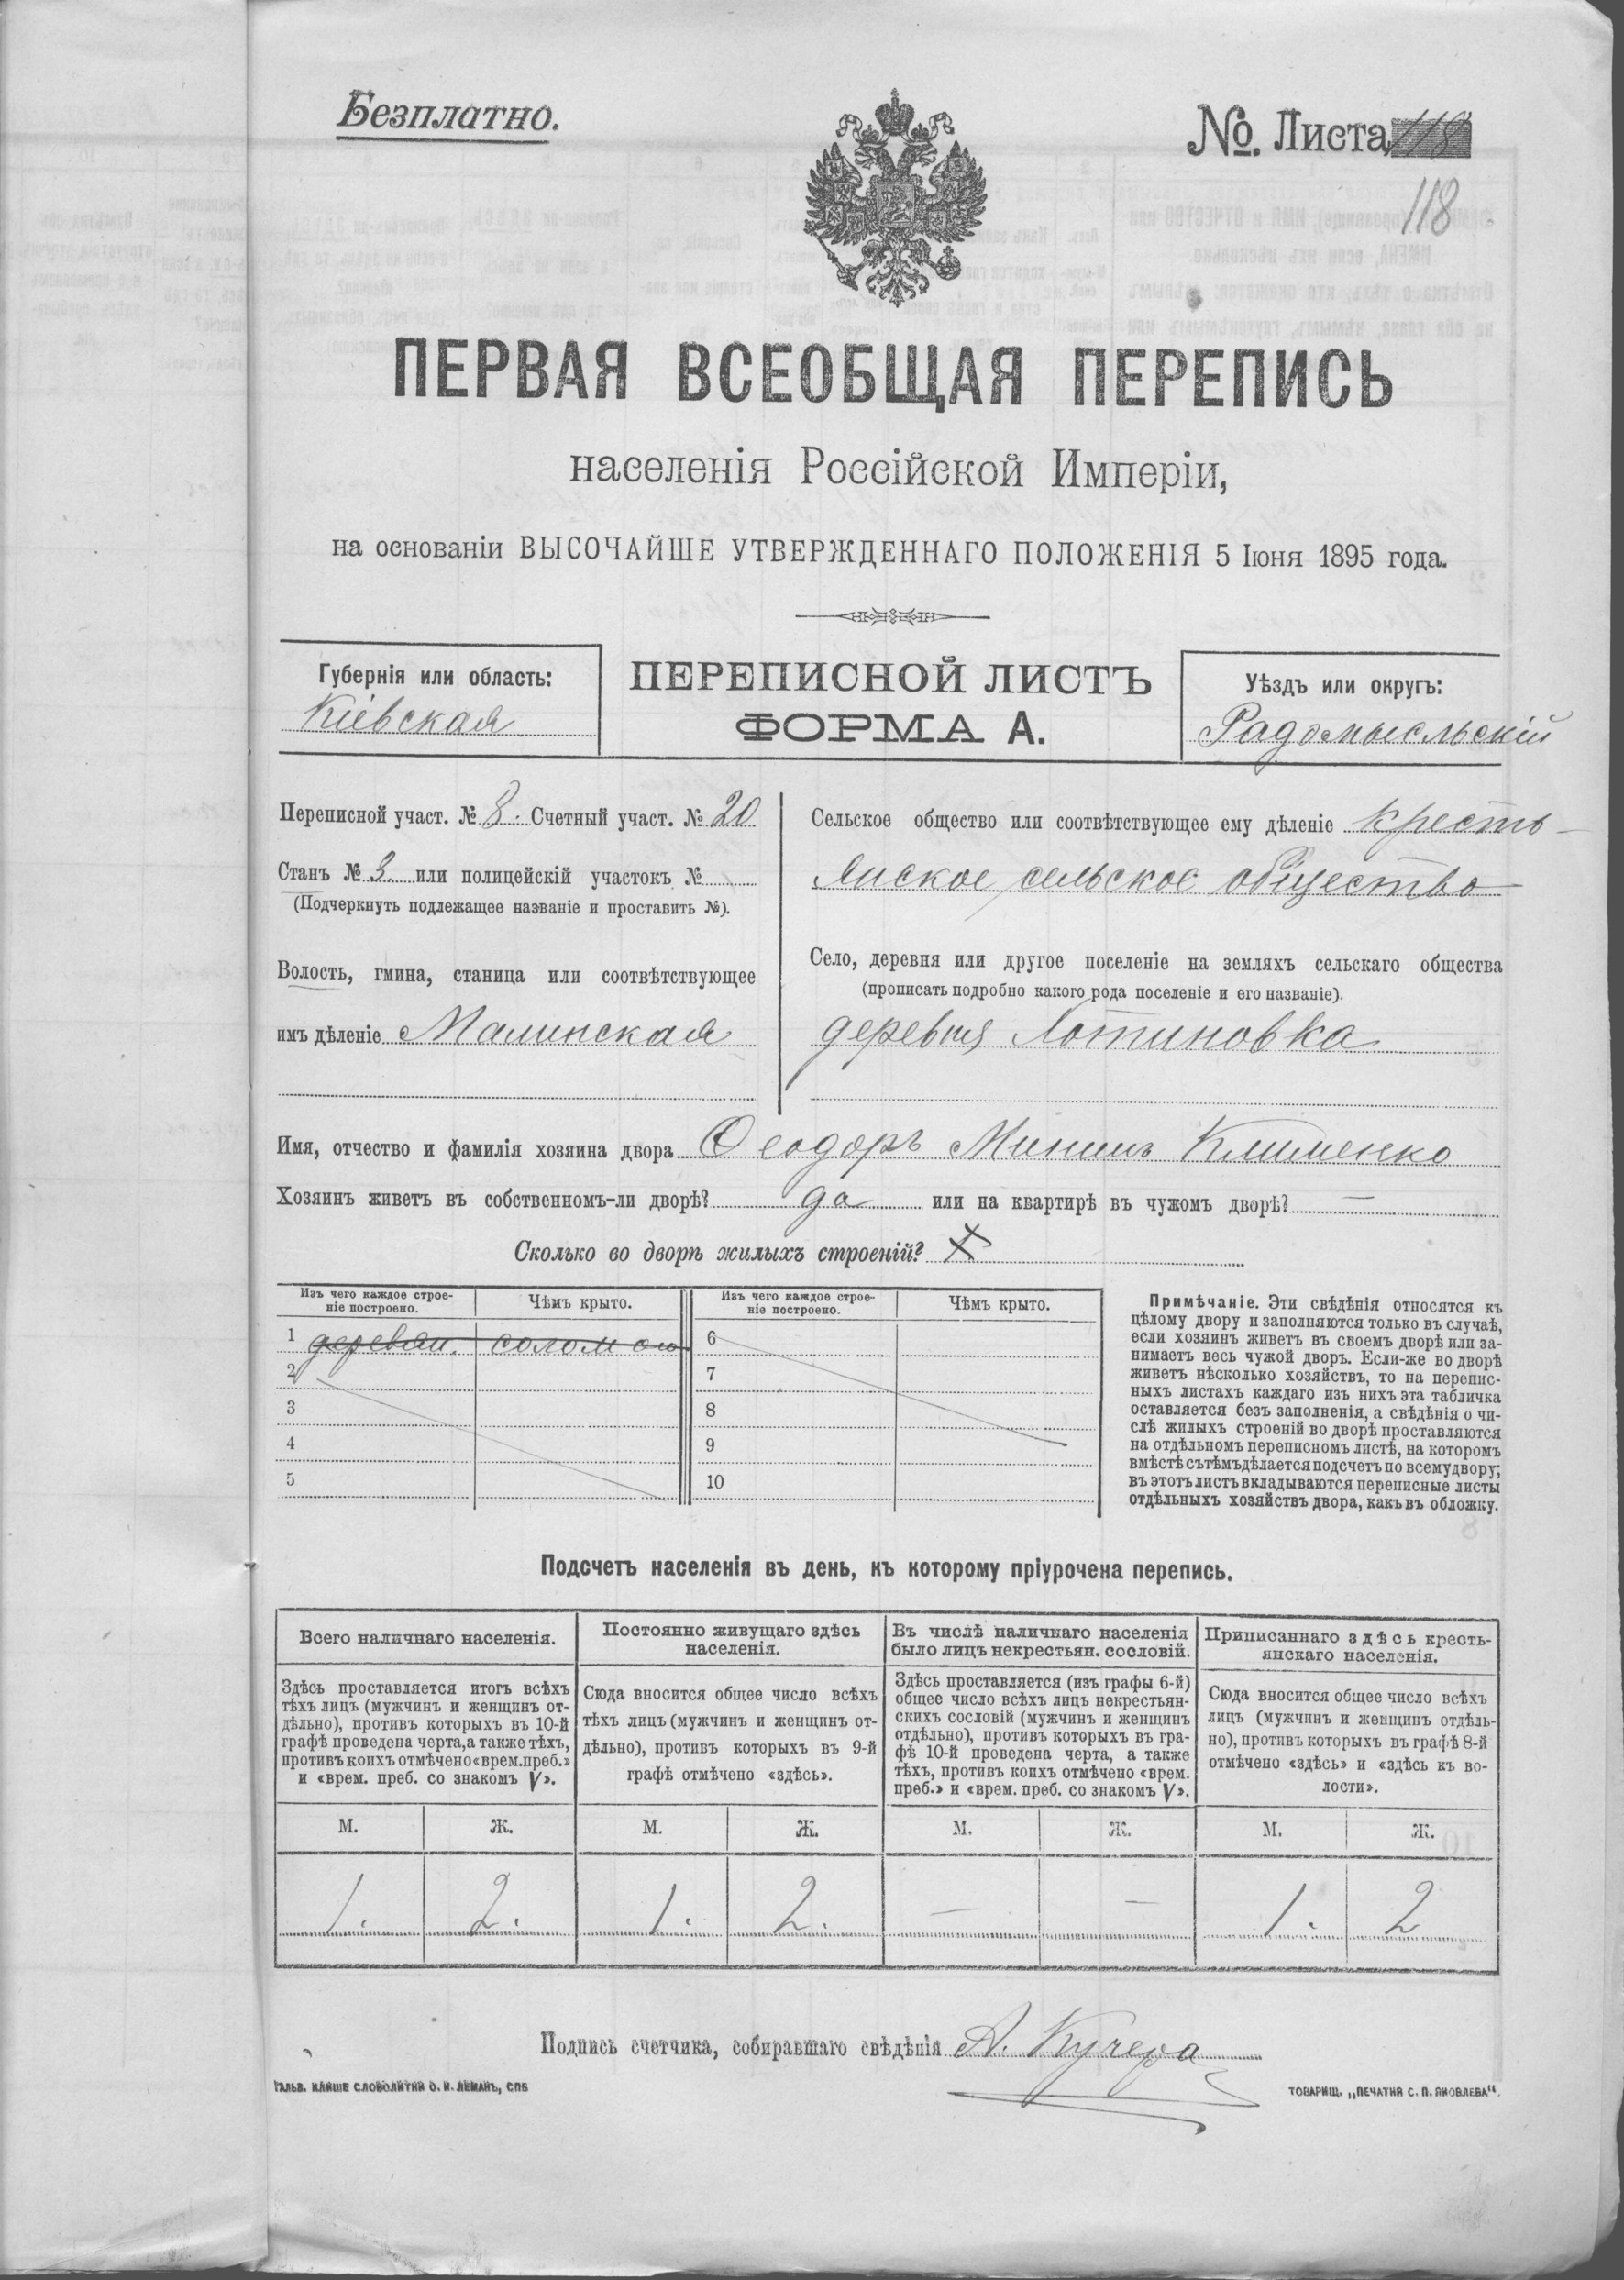 Безплатно.
№. Листа 118
118
ПЕРВАЯ ВСЕОБЩАЯ ПЕРЕПИСЬ
населенія Россійской Имперіи,
на основаніи ВЫСОЧАЙШЕ УТВЕРЖДЕННАГО ПОЛОЖЕНІЯ 5 Іюня 1895 года.
Губернія или область:
Кіевская
ПЕРЕПИСНОЙ ЛИСТЪ
ФОРМА А.
Уѣздъ или округъ:
Радомысльскій
Переписной участ. № 8. Счетный участ. № 20
Станъ № 3. или полицейскій участокъ №
(Подчеркнуть подлежащее названіе и проставить №).
Волость, гмина, станица или соотвѣтствующее
имъ дѣленіе Малинская
Сельское общество или соотвѣтствующее ему дѣленіе кресть-
янское сельское общество
Село, деревня или другое поселеніе на земляхъ сельскаго общества
(прописать подробно какого рода поселеніе и его названіе).
деревня Лотиновка
Имя, отчество и фамилія хозяина двора Ѳеодоръ Мининъ Клименко
Хозяинъ живетъ въ собственномъ-ли дворѣ? да или на квартирѣ въ чужомъ дворѣ? —
Сколько во дворѣ жилыхъ строеній? X
Изъ чего каждое строе-
ніе построено.
Чѣмъ крыто.
Изъ чего каждое строе-
ніе построено.
Чѣмъ крыто.
1 деревян. соломою 6
2 7
3 8
4 9
5 10
Примѣчаніе. Эти свѣдѣнія относятся къ
цѣлому двору и заполняются только въ случаѣ,
если хозяинъ живетъ въ своемъ дворѣ или за-
нимаетъ весь чужой дворъ. Если-же во дворѣ
живетъ нѣсколько хозяйствъ, то на перепис-
ныхъ листахъ каждаго изъ нихъ эта табличка
оставляется безъ заполненія, а свѣдѣнія о чи-
слѣ жилыхъ строеній во дворѣ проставляются
на отдѣльномъ переписномъ листѣ, на которомъ
вмѣстѣ съ тѣмъ дѣлается подсчетъ по всему двору;
въ этотъ листъ вкладываются переписные листы
отдѣльныхъ хозяйствъ двора, какъ въ обложку.
Подсчетъ населенія въ день, къ которому пріурочена перепись.
Всего наличнаго населенія.
Здѣсь проставляется итогъ всѣхъ
тѣхъ лицъ (мужчинъ и женщинъ от-
дѣльно), противъ которыхъ въ 10-й
графѣ проведена черта, а также тѣхъ,
противъ коихъ отмѣчено «врем. преб.»
и «врем. преб. со знакомъ V».
Постоянно живущаго здѣсь
населенія.
Сюда вносится общее число всѣхъ
тѣхъ лицъ (мужчинъ и женщинъ от-
дѣльно), противъ которыхъ въ 9-й
графѣ отмѣчено «здѣсь».
Въ числѣ наличнаго населенія
было лицъ некрестьян. сословій.
Здѣсь проставляется (изъ графы 6-й)
общее число всѣхъ лицъ некрестьян-
скихъ сословій (мужчинъ и женщинъ
отдѣльно), противъ которыхъ въ гра-
фѣ 10-й проведена черта, а также
тѣхъ, противъ коихъ отмѣчено «врем.
преб.» и «врем. преб. со знакомъ V».
Приписаннаго здѣсь кресть-
янскаго населенія.
Сюда вносится общее число всѣхъ
лицъ (мужчинъ и женщинъ отдѣль-
но), противъ которыхъ въ графѣ 8-й
отмѣчено «здѣсь» и «здѣсь къ во-
лости».
М. Ж. М. Ж. М. Ж. М. Ж.
1. 2. 1. 2. — — 1. 2
Подпись счетчика, собиравшаго свѣдѣнія А. Кучера
ГАЛЬВ. КЛИШЕ СЛОВОЛИТНИ О. И. ЛЕМАНЪ, СПБ
ТОВАРИЩ. „ПЕЧАТНЯ С. П. ЯКОВЛЕВА“.